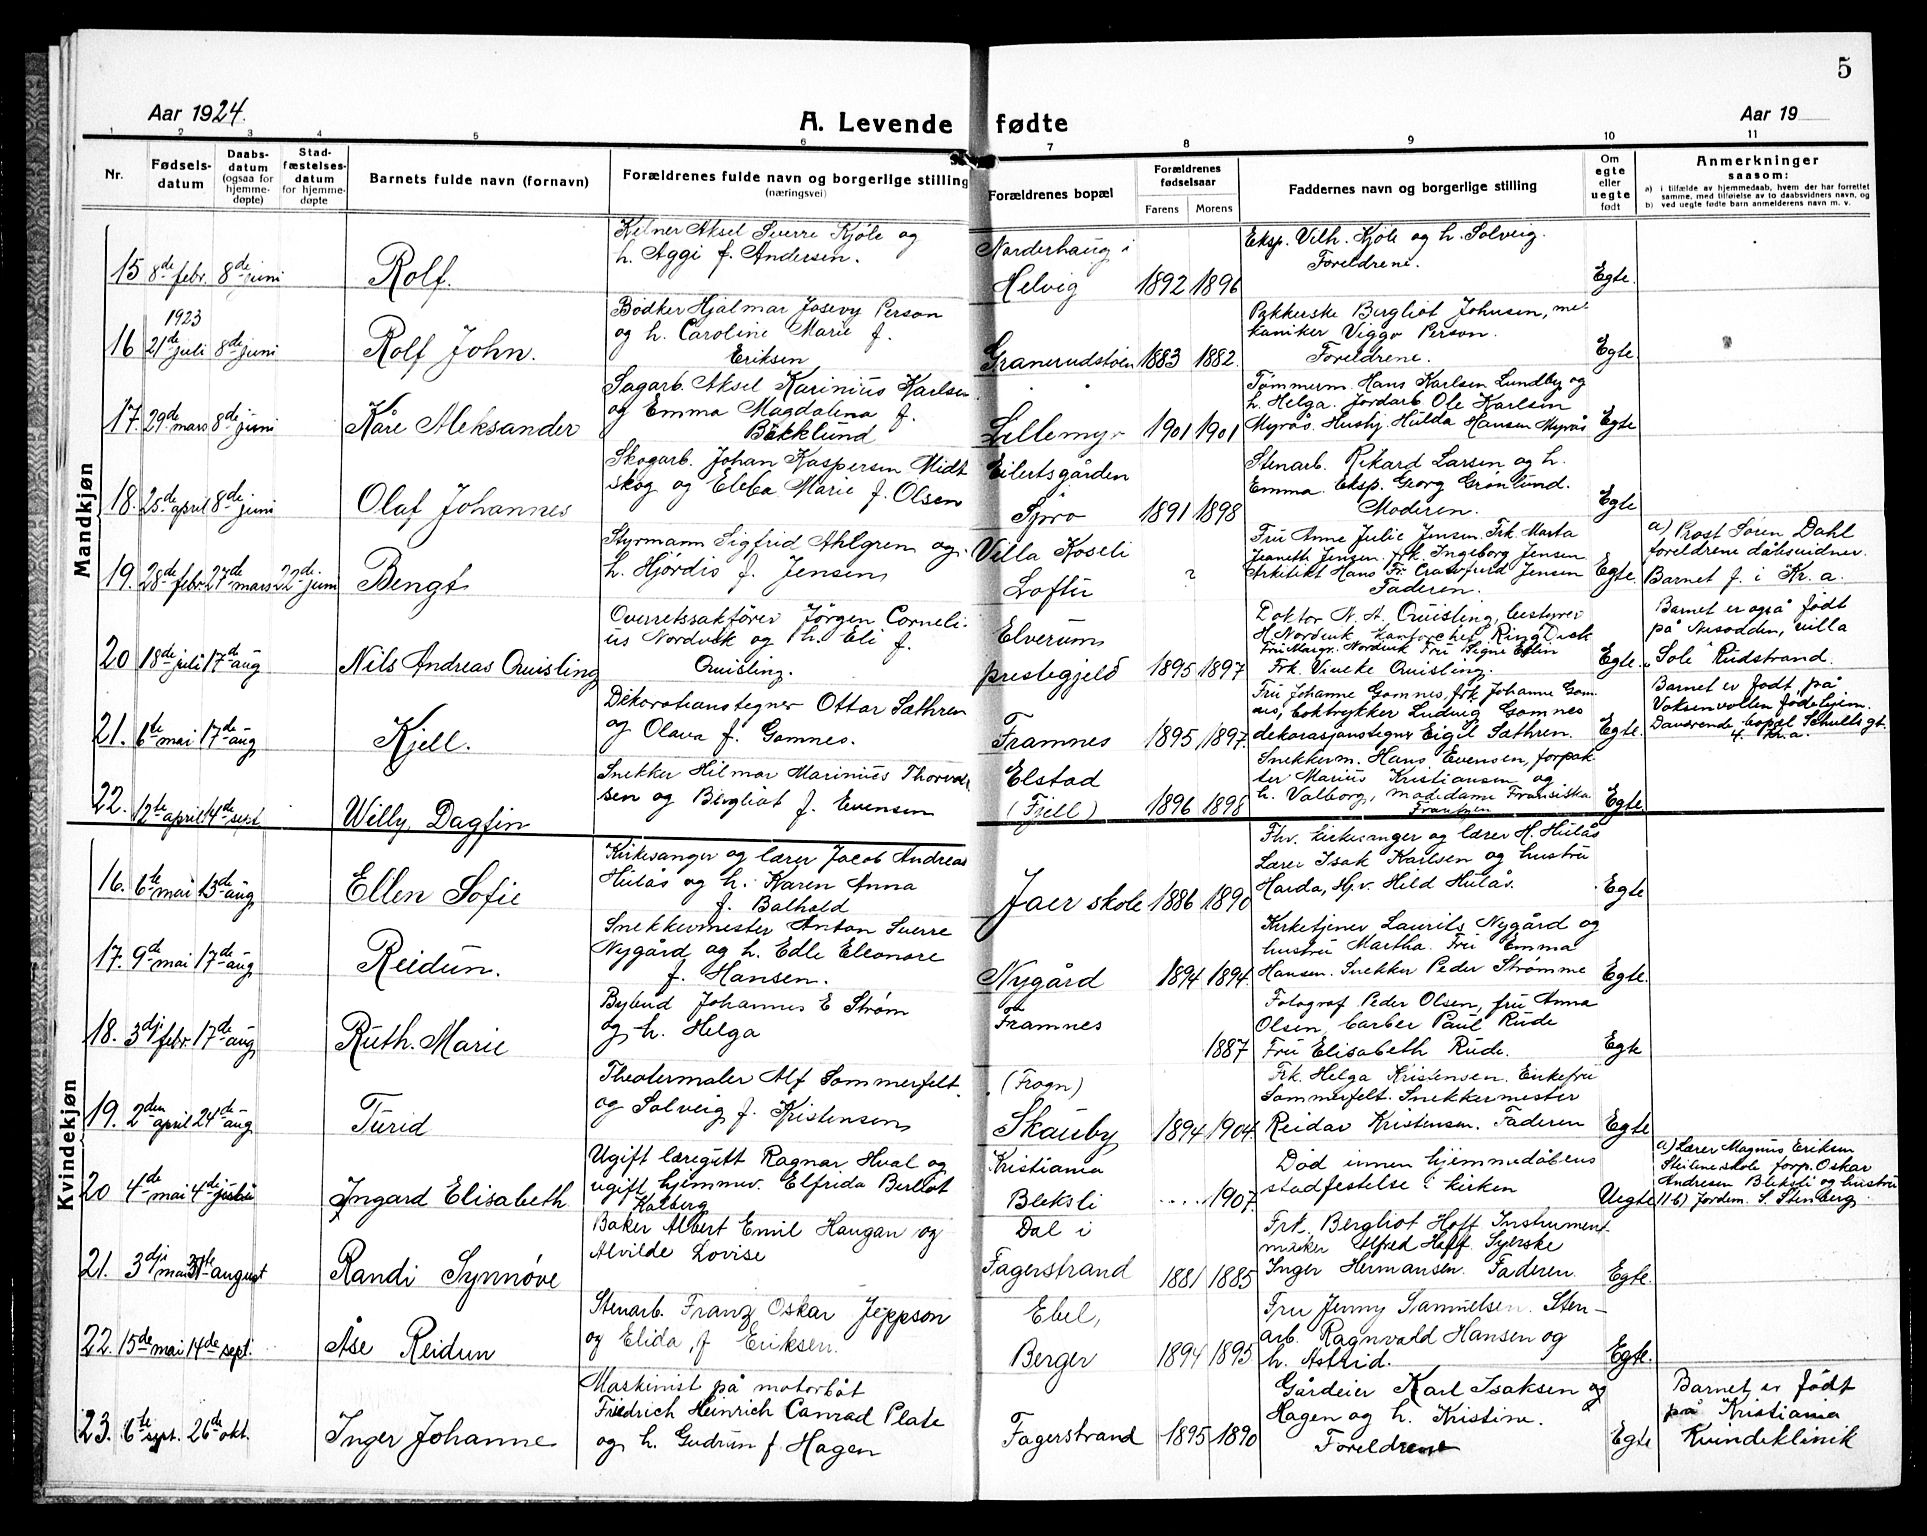 5
Aar 1924.
A. Levende fødte
Aar 19
1 2 3 4 5 6 7 8 9 10 11
Nr.
Fødsels-
datum
Daabs-
datum
(ogsaa for
hjemme-
døpte)
Stad-
fæstelses-
datum
for hjemme-
døpte
Barnets fulde navn (fornavn)
Forældrenes fulde navn og borgerlige stilling
(næringsvei)
Forældrenes bopæl
Forældrenes
fødselsaar
Farens Morens
Faddernes navn og borgerlige stilling
Om
egte
eller
uegte
født
Anmerkninger
saasom:
a) i tilfælde av hjemmedaab, hvem der har forrettet
samme, med tilføielse av to daabsvidners navn, og
b) ved uegte fødte barn anmelderens navn m. v.
Mandkjøn
15 8de febr. 8de juni
Rolf.
Kelner Aksel Sverre Kjöle og
h. Aggi f. Andersen.
Norderhaug i
Helvig
1892 1896
Eksp. Vilh. Kjöle og h. Solveig.
Foreldrene.
Egte.
16 1923
21de juli 8de juni
Rolf John.
Bødker Hjalmar Josevy Person
og h. Caroline Marie f.
Eriksen
Granerudstøen
1883 1882.
Pakkerske Bergliot Johnsen, me-
kaniker Viggo Person.
Foreldrene.
Egte
17 29de mars 8de juni
Kåre Aleksander
Sagarb. Aksel Karinius Karlsen
og Emma Magdalena f.
Bäcklund
Lillemyr
1901 1901
Tømmerm. Hans Karlsen Lundby og
h. Helga. Jordarb. Ole Karlsen
Myrås. Hushj. Hulda Hansen Myrås
Egte
18. 25de april 8de juni
Olaf Johannes
Skogarb. Johan Kaspersen Midt
skog og Ebba Marie f. Olsen
Eilertsgården
Spro
1891 1898
Stenarb. Rikard Larsen og h.
Emma. Eksp. Georg Grønlund.
Moderen.
Egte
19. 28de febr. 27de mars 22de juni
Bengt
Styrmann Sigfrid Ahlgren og
h. Hjördis f. Jensen
Villa Koseli
Loftu
?
Fru Anne Julie Jensen. Frk Marta
Jeaneth Jensen, frk. Ingeborg Jensen
Arkitekt Hans Fr. Crawfurd Jensen
Faderen.
Egte.
a) Prost Søren Dahl
foreldrene dåbsvidner.
Barnet f. i Kr. a.
20 18de juli 17de aug
Nils Andreas Quisling
Overretssakfører Jörgen Corneli-
us Nordvik og h. Eli f.
Quisling.
Elverums
prestegjeld
1895 1897
Doktor N. A. Quisling, bestyrer
H. Nordvik, kontorchef Ring Disk
Fru Margr. Nordvik Fru Signe Elsin
Frk. Viveke Quisling.
Egte.
Barnet er også født
på Nesodden, villa
"Sole" Rudstrand.
21. 6te mai 17de aug
Kjell.
Dekorationstegner Ottar Sæthren
og Olava f. Gomnes.
Framnes
1895 1897.
Fru Johanne Gomnes, frk Johanne Gom-
nes, boktrykker Ludvig Gomnes
dekorasjonstegner Eigil Sæthren.
Egte.
Barnet er født på
Voksenvollen fødehjem.
Daværende bopæl Schultsgt.
4. Kr.a.
22. 12te april 14de sept.
Willy Dagfin
Snekker Hilmar Marinius Thorvad
sen og Bergliot f. Evensen
Elstad
(Fjell)
1896 1898
Snekkerm. Hans Evensen, forpak-
ter Marius Kristiansen og
h. Valborg, madame Fransiska
Frantzen
Egte
Kvindekjøn
16. 6te mai 13de aug
Ellen Sofie
Kirkesanger og lærer Jacob Andreas
Hulås og h. Karen Anna
f. Balhald
Jaer skole
1886 1890
Fhv. kirkesanger og lærer H. Hulås
Lærer Isak Karlsen og hustru
Harda, Hpv. Hild Hulås.
Egte
17. 9de mai 17de aug
Reidun.
Snekkermester Anton Sverre
Nygård og h. Edle Eleonore
f. Hansen.
Nygård
1894 1894.
Kirketjener Laurits Nygård og
hustru Martha. Fru Emma
Hansen. Snekker Peder Strømme
Egte.
18. 3dji febr. 17de aug
Ruth Marie
Bybud Johannes E Strøm
og h. Helga
Framnes
1887
Fotograf Peder Olsen, fru Anna
Olsen, barber Paul Rude
Fru Elisabeth Rude.
Egte
19. 2den april 24de aug
Turid
Theatermaler Alf Sommerfelt
og Solveig f. Kristensen
(Frogn)
Skauby
1894 1904.
Frk. Helga Kristensen. Enkefru
Sommerfelt. Snekkermester
Reidar Kristensen. Faderen
Egte
20 4de mai 4de
Ingard Elisabeth
Ugift læregutt Ragnar Hval og
ugift hjemmev. Elfrida Berliot
Kalberg
Kristiania
Bleksli
.... 1907.
Død innen hjemmedåbens
stadfestelse i kirken
Uegte
a) Lærer Magnus Eriksen
skole forp. Oskar
Andresen Bleksli og hustru
b) Jordem. S. Stenberg.
21. 3dji mai 31te august
Randi Synnøve
Baker Albert Emil Haugan og
Alvilde Lovise
Dal i
Fagerstrand
1881 1885
Frk. Bergliot Hoff Instrument
maker Alfred Hoff. Syerske
Inger Hermansen. Faderen.
Egte.
22. 15de mai 14de sept.
Åse Reidun
Stenarb. Franz Oskar Jeppson
og Elida f Eriksen.
Ebel,
Berger
1894 1895
Fru Jenny Samuelsen. Sten-
arb. Ragnvald Hansen og
h. Astrid.
Egte.
23. 6te sept. 26de okt.
Inger Johanne
Maskinist på motorbåt
Friedrich Heinrich Conrad Plate
og h. Gudrun f. Hagen
Fagerstrand
1895 1890
Gårdeier Karl Isaksen og
Hagen og h. Kristine.
Foreldrene
Egte
Barnet er født
på Kristiania
Kvindeklinik